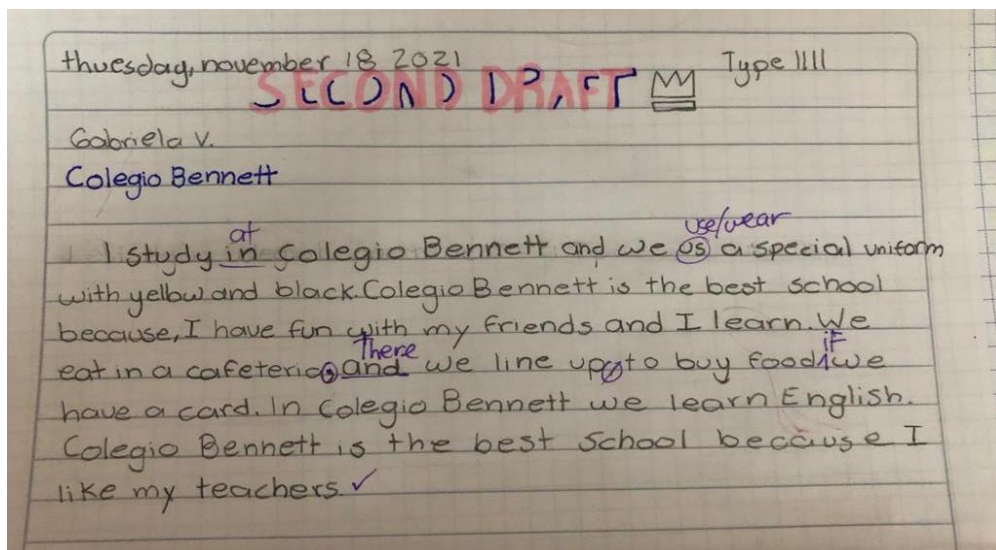 thuesday, november 18 2021 Type IIII
SECOND DRAFT
Gabriela V.
Colegio Bennett
at use/wear
I study in Colegio Bennett and we os a special uniform
with yellow and black. Colegio Bennett is the best school
because, I have fun with my friends and I learn. We
There if
eat in a cafeteria. and we line up, to buy food we
have a card. In Colegio Bennett we learn English.
Colegio Bennett is the best School because I
like my teachers. ✓